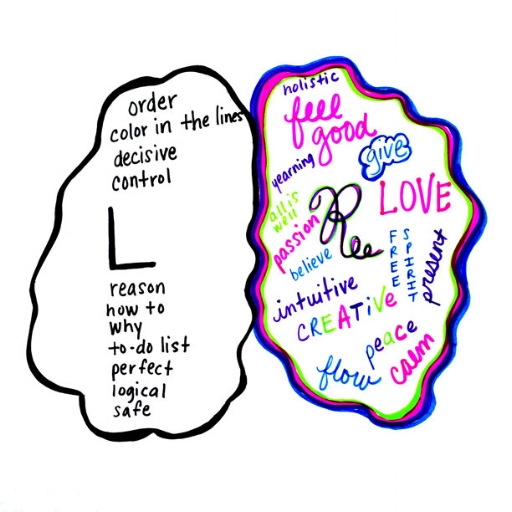 order
color in the lines
decisive
control
L
reason
how to
why
to-do list
perfect
logical
safe
holistic
feel
good
yearning
give
all is
well
passion
R
LOVE
believe
FREE
SPIRIT
present
intuitive
CREATiVe
peace
flow
calm